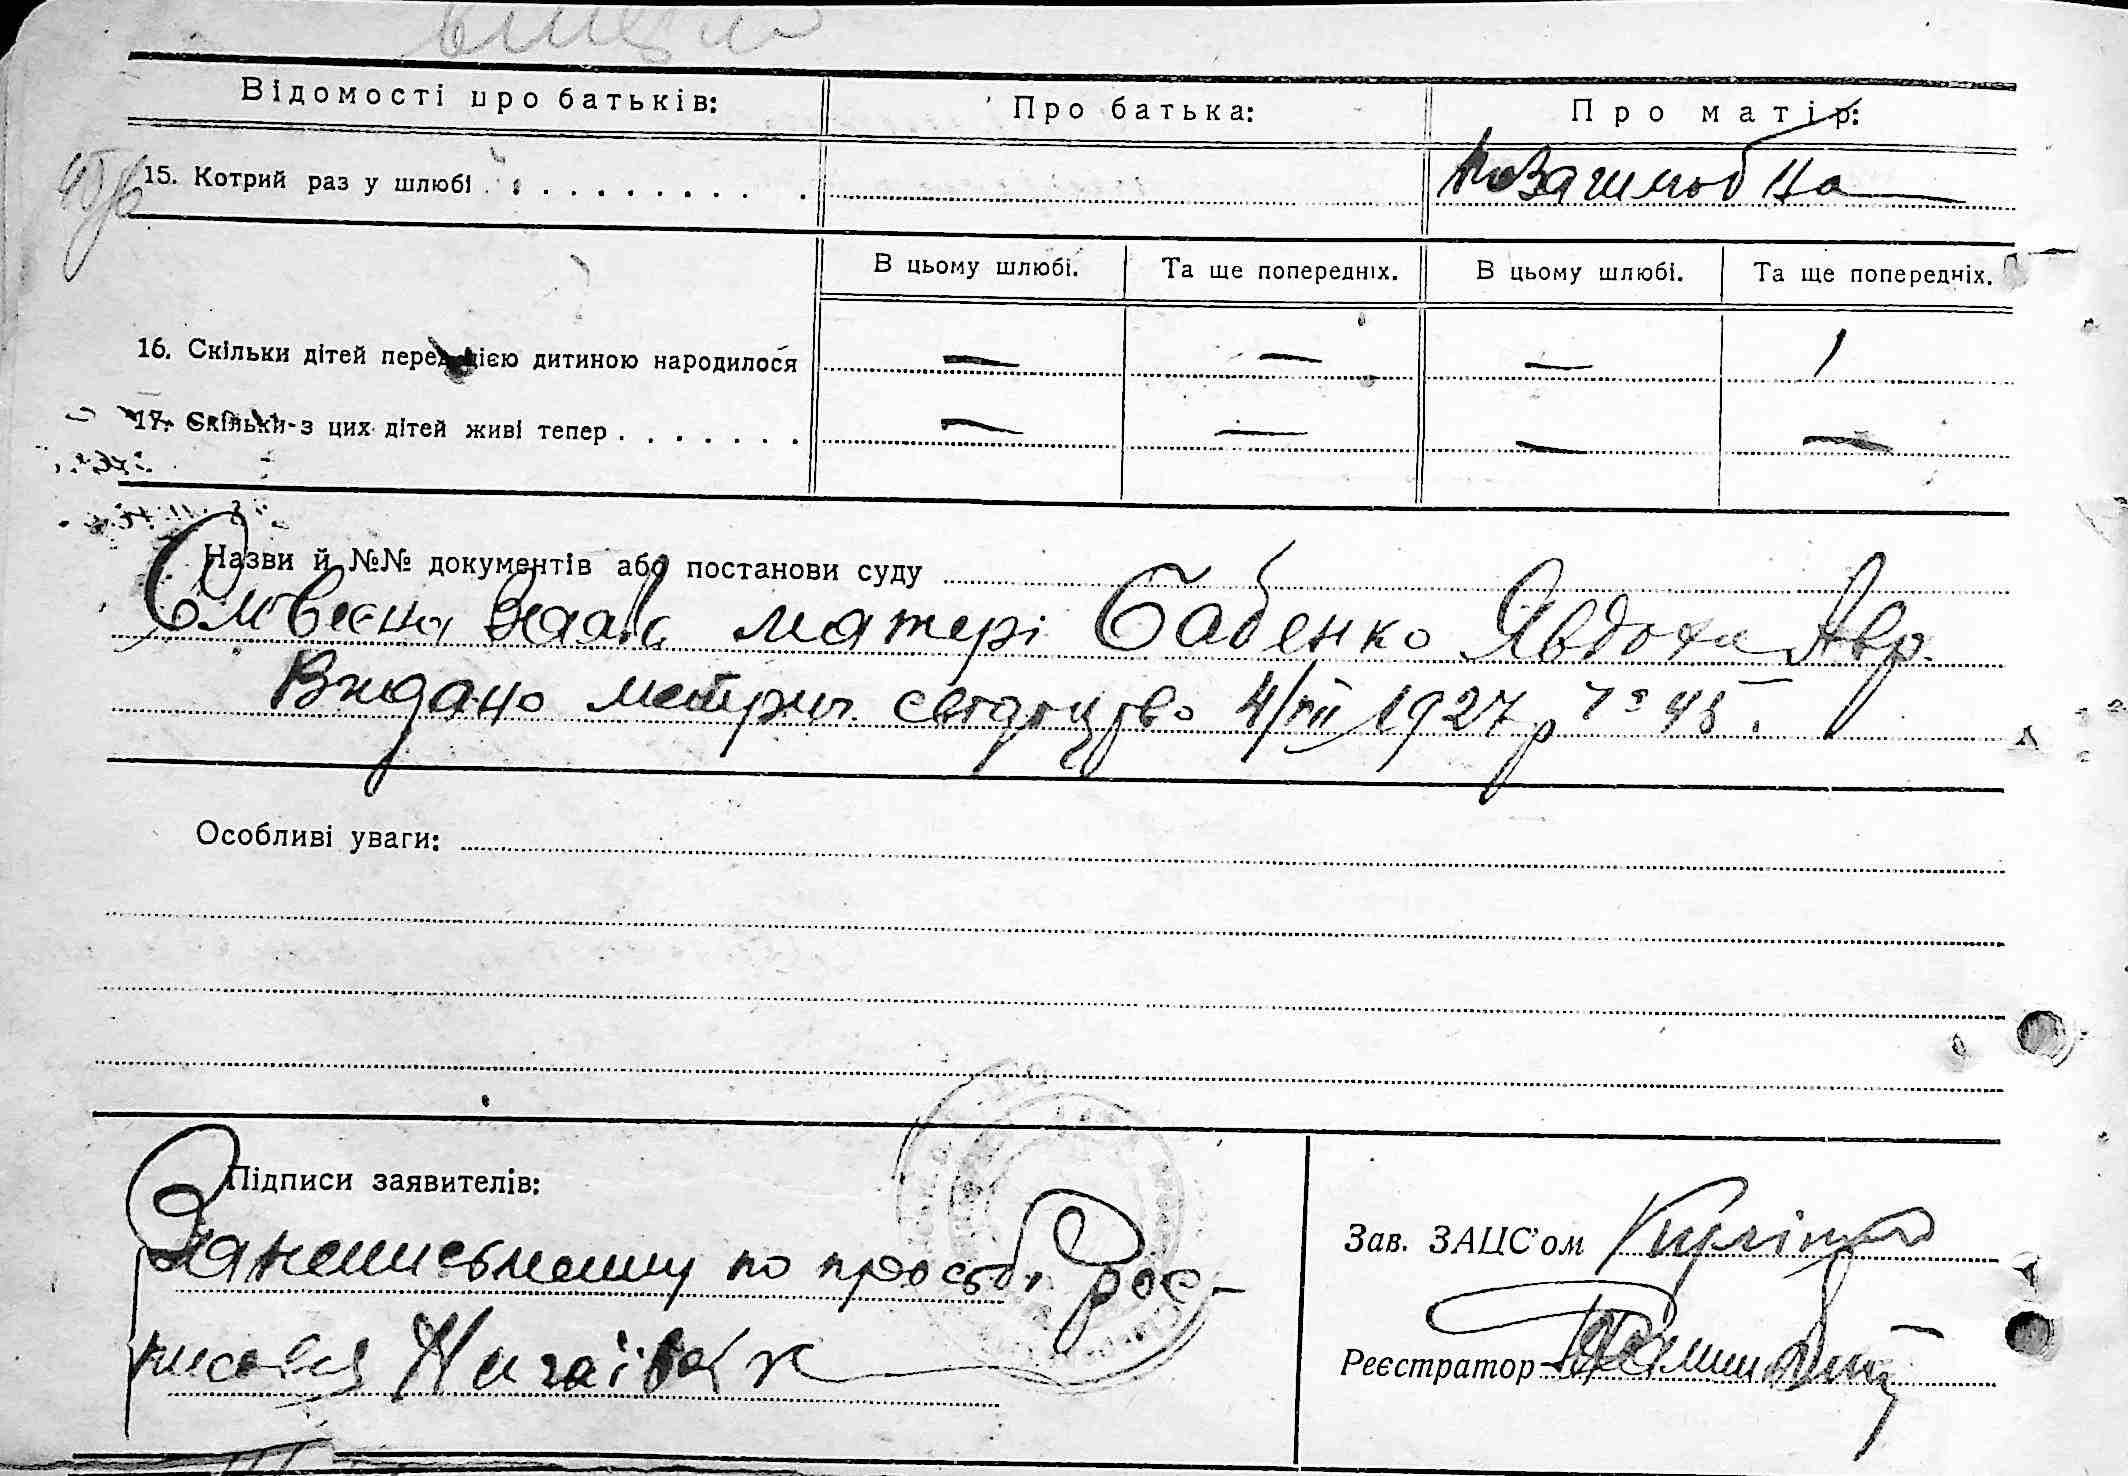 Відомості про батьків: Про батька: Про матір:
15. Котрий раз у шлюбі . . . . . . . . . . . Позашлюбна
В цьому шлюбі. Та ще попередніх. В цьому шлюбі. Та ще попередніх.
16. Скільки дітей перед цією дитиною народилося — — — 1
17. Скільки з цих дітей живі тепер . . . . . . . — — — —
Назви й №№ документів або постанови суду
Заява матері Бабенко Явдохи Авр.
Видано метрич. свідоцтво 4/VII 1927 р № 45.
Особливі уваги:
Підписи заявителів:
За неписьменну по просьбі рос-
писався
Зав. ЗАЦС'ом
Реєстратор